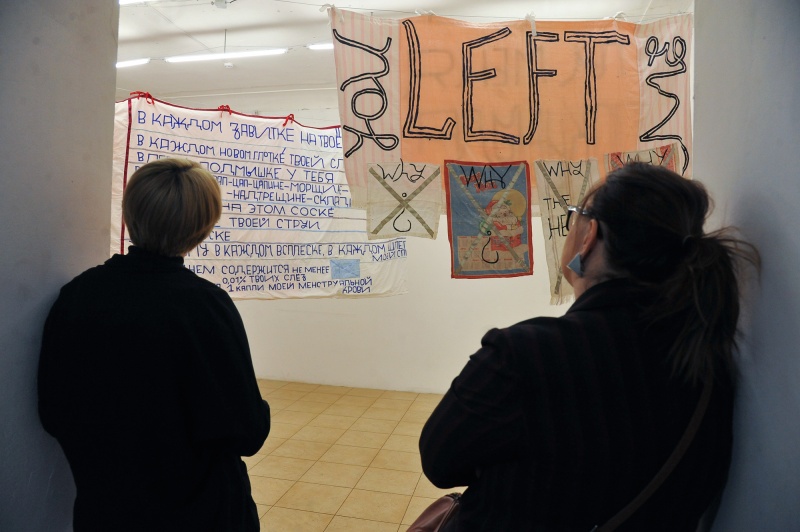 В КАЖДОМ ЗАВИТКЕ НА ТВОЕ
В КАЖДОМ НОВОМ ГЛОТКЕ ТВОЕЙ СЛ
ПОДМЫШКЕ У ТЕБЯ
ЦАП-ЦАРАПИНЕ-МОРЩИНЕ-
-НАДТРЕЩИНЕ-СКЛА
НА ЭТОМ СОСКЕ
ТВОЕЙ СТРУИ
В КАЖДОМ ВСПЛЕСКЕ, В КАЖДОМ ШЛЕ
МОЕЙ СП
НЕМ СОДЕРЖИТСЯ НЕ МЕНЕЕ
0,01% ТВОИХ СЛЕЗ
1 КАПЛИ МОЕЙ МЕНСТРУАЛЬНОЙ
КРОВИ
you
LEFT
us
WHY
?
WHY
?
WHY
THE
HE
WHY